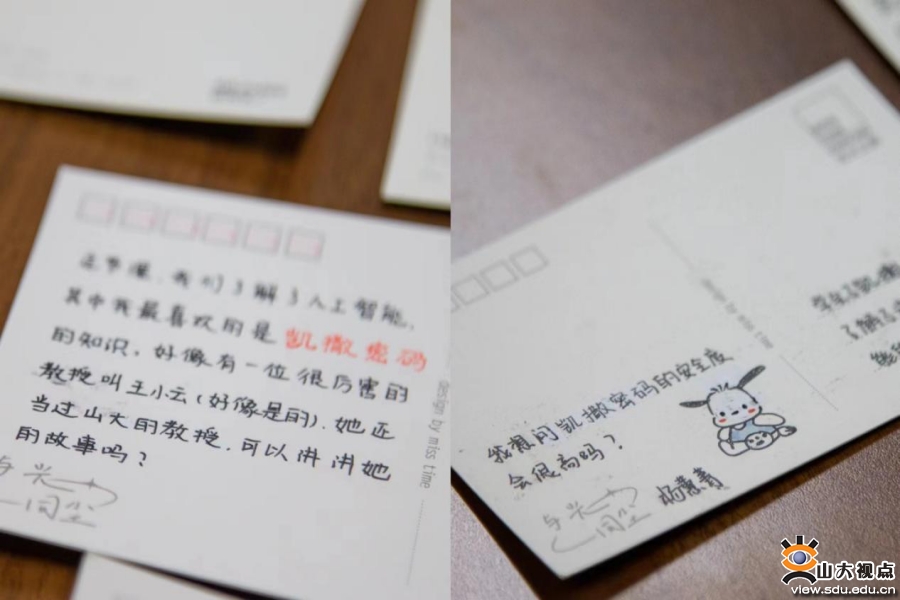 这节课，我们了解了人工智能，
其中我最喜欢的是凯撒密码
的知识，好像有一位很厉害的
教授叫王小云（好像是的），她还
当过山大的教授，可以讲讲她
的故事吗？
与光
同尘
design by miss time
我想问凯撒密码的安全度
会很高吗？
与光
同尘
design by miss time
山大视点
view.sdu.edu.cn